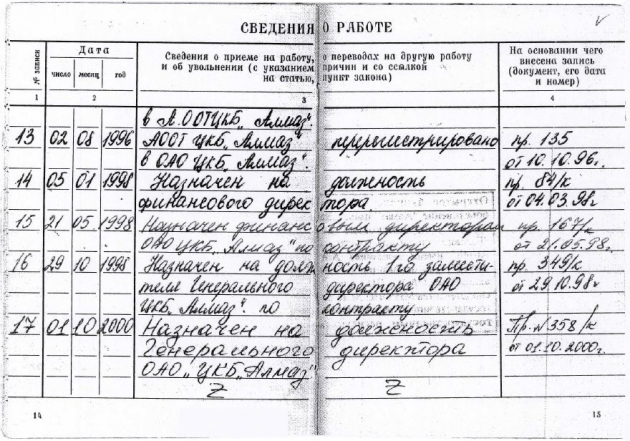 СВЕДЕНИЯ О РАБОТЕ
№ записи
Дата
число месяц год
Сведения о приеме на работу, о переводах на другую работу
и об увольнении (с указанием причин и со ссылкой
на статью, пункт закона)
На основании чего
внесена запись
(документ, его дата
и номер)
1 2 3 4
в А.ООТЦКБ „Алмаз“.
13 02 08 1996 АООТ ЦКБ „Алмаз“ перерегистрировано пр. 135
в ОАО ЦКБ „Алмаз“. от 10.10.96г.
14 05 01 1998 Назначен на должность пр. 84/к
финансового директора от 04.03.98г
15 21 05 1998 Назначен финансовым директором пр. 167/к
ОАО ЦКБ „Алмаз“ по контракту от 21.05.98г.
16 29 10 1998 Назначен на должность 1го замести- пр. 349/к
теля Генерального директора ОАО от 29.10.98г
ЦКБ „Алмаз“ по контракту
17 01 10 2000 Назначен на должность Пр. №358/к
Генерального директора от 01.10.2000г.
ОАО „ЦКБ „Алмаз“
Z Z
14 15